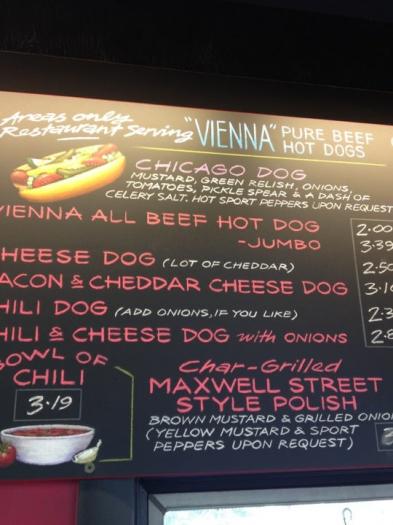 Areas only
Restaurant Serving "VIENNA" PURE BEEF
HOT DOGS
CHICAGO DOG
MUSTARD, GREEN RELISH, ONIONS,
TOMATOES, PICKLE SPEAR & A DASH OF
CELERY SALT. HOT SPORT PEPPERS UPON REQUEST
VIENNA ALL BEEF HOT DOG 2.00
-JUMBO 3.39
CHEESE DOG (LOT OF CHEDDAR) 2.50
BACON & CHEDDAR CHEESE DOG 3.1
CHILI DOG (ADD ONIONS, IF YOU LIKE) 2.3
CHILI & CHEESE DOG with ONIONS 2.8
BOWL OF
CHILI
3.19
Char-Grilled
MAXWELL STREET
STYLE POLISH
BROWN MUSTARD & GRILLED ONIO
(YELLOW MUSTARD & SPORT
PEPPERS UPON REQUEST)